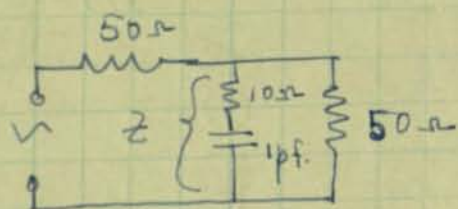 50Ω
Z
10Ω
1pf.
50Ω